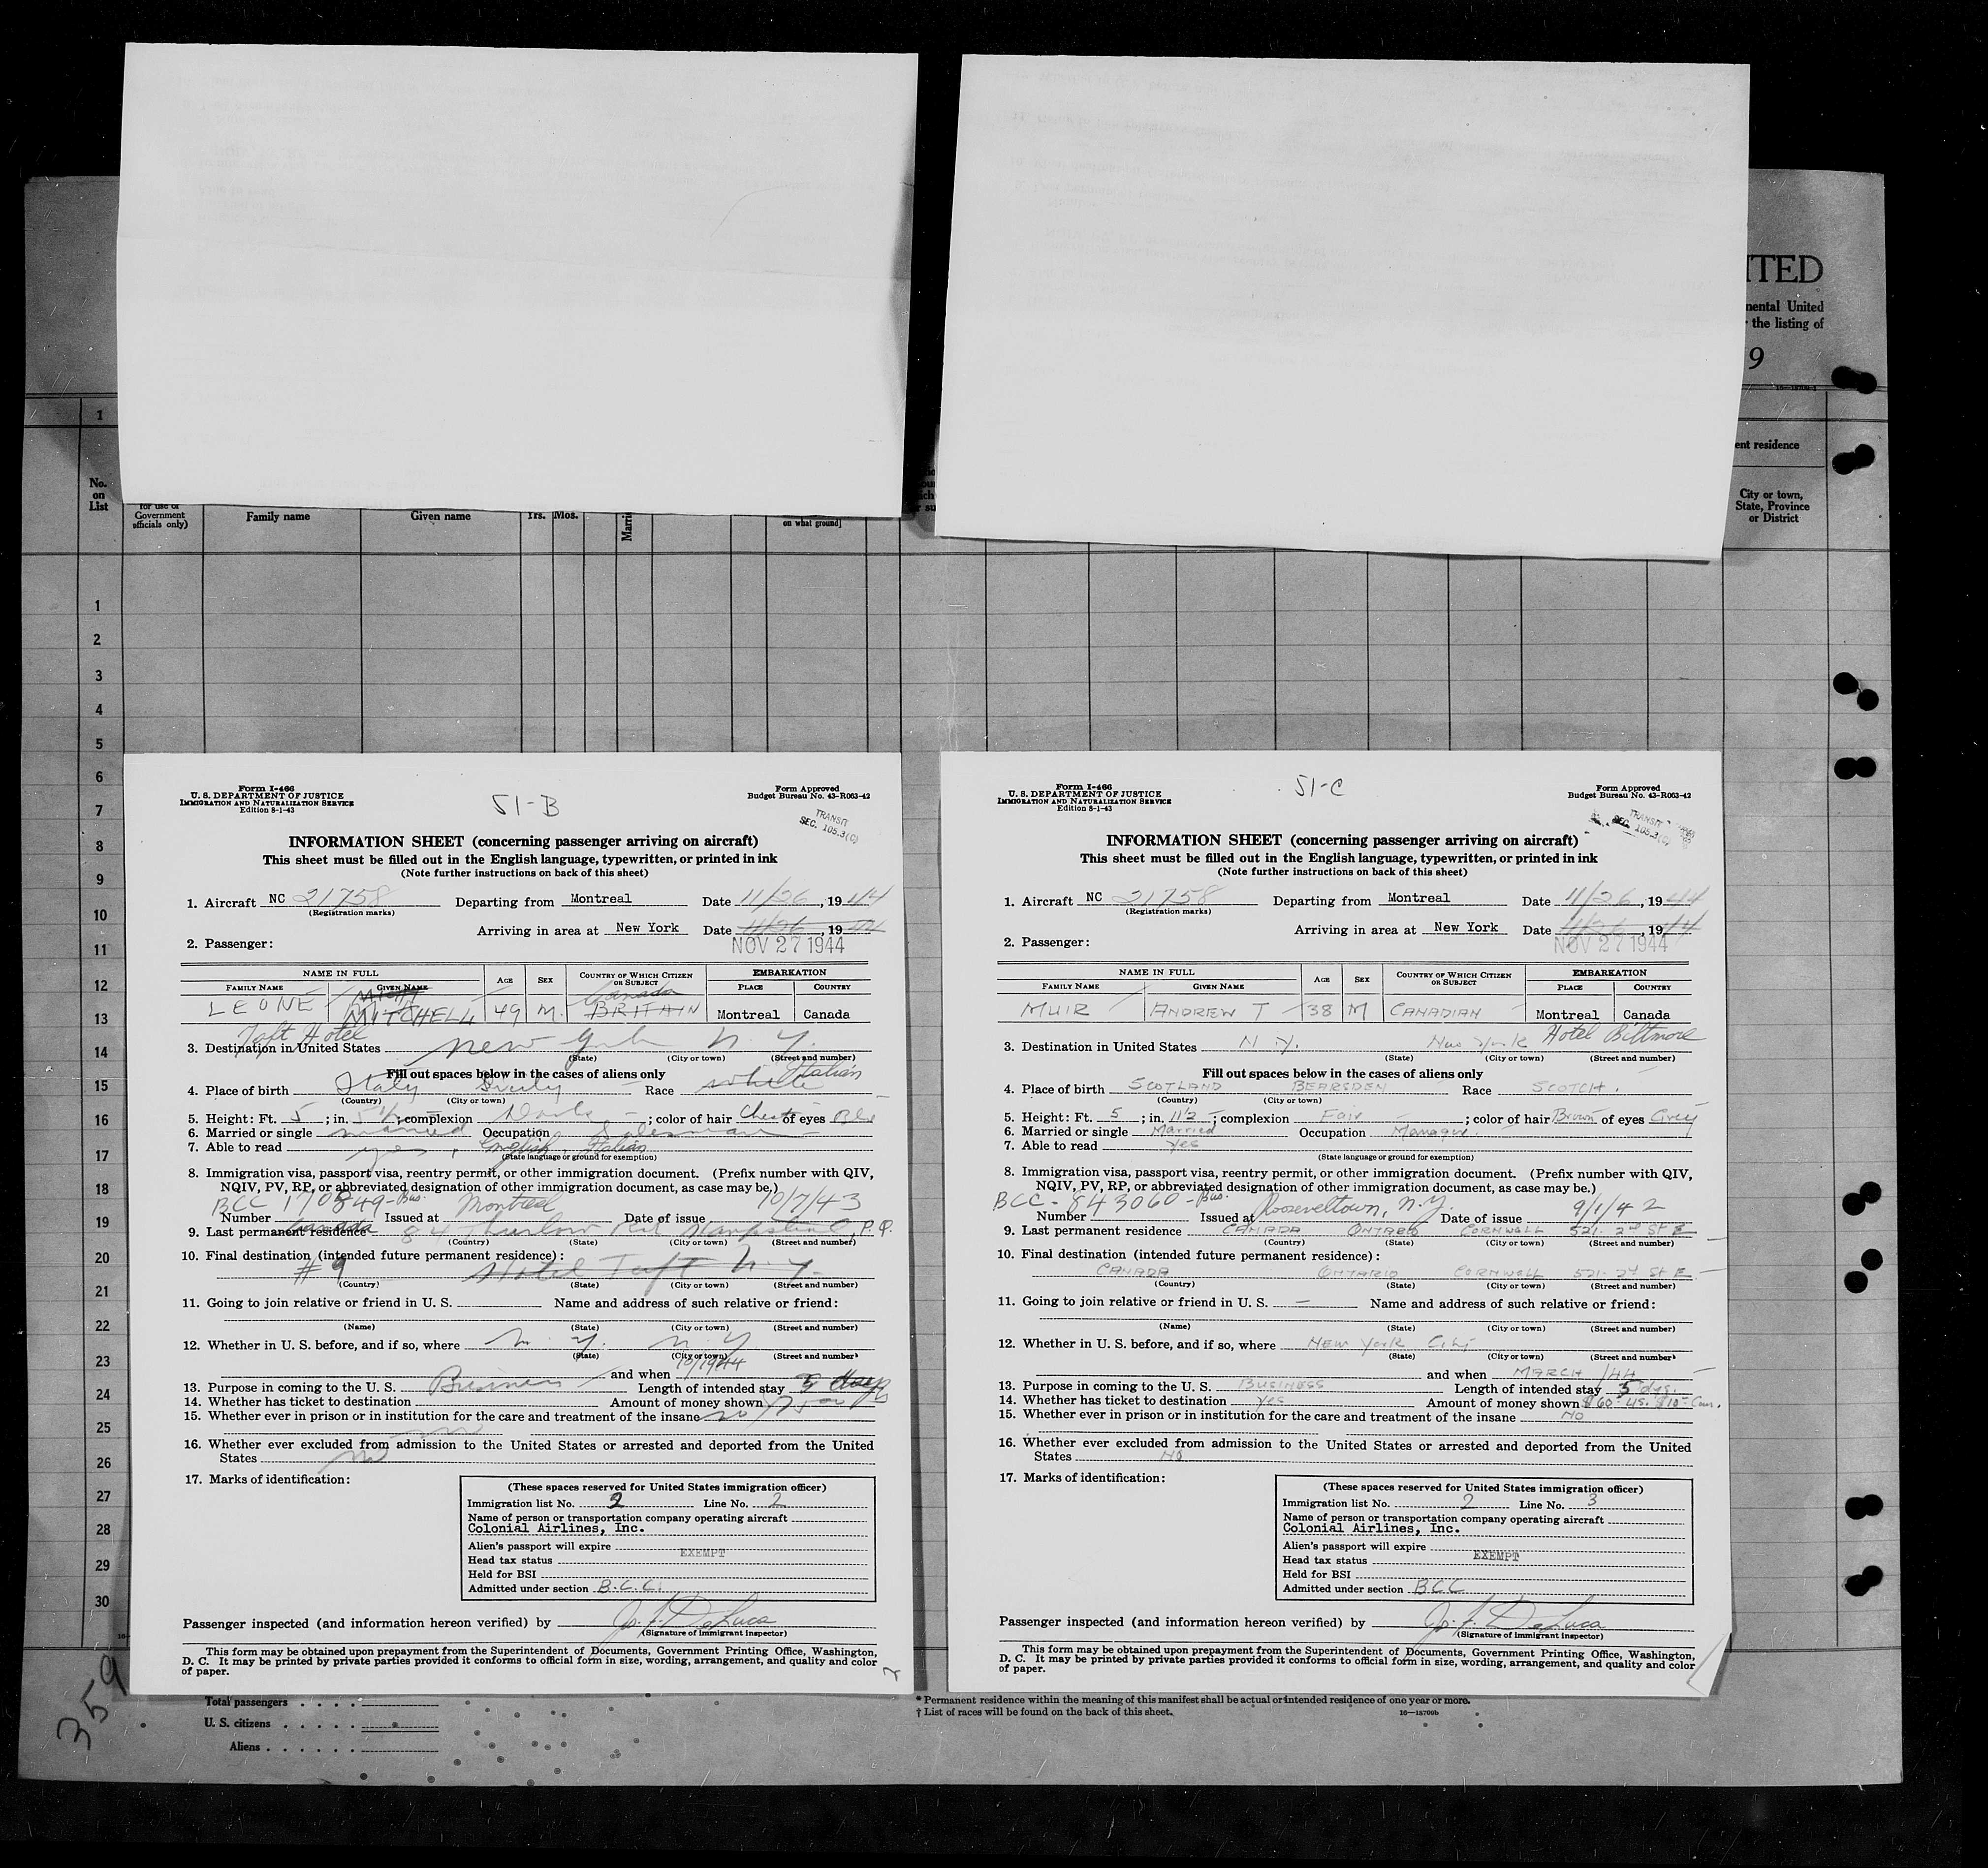 ITED
nental United
the listing of
9
1
ent residence
No.
on
List
Government
officials only)
Family name
Given name
Yrs. Mos.
on what ground]
City or town,
State, Province
or District
1
2
3
4
5
6
7
8
9
10
11
12
13
14
15
16
17
18
19
20
21
22
23
24
25
26
27
28
29
30
Form I-466
U. S. DEPARTMENT OF JUSTICE
IMMIGRATION AND NATURALIZATION SERVICE
Edition 8-1-43
51-B
Form Approved
Budget Bureau No. 43-R063-42
TRANSIT
SEC. 105.3(C)
INFORMATION SHEET (concerning passenger arriving on aircraft)
This sheet must be filled out in the English language, typewritten, or printed in ink
(Note further instructions on back of this sheet)
1. Aircraft NC 21758 Departing from Montreal Date 11/26, 1944
(Registration marks)
Arriving in area at New York Date 11/26, 1944
NOV 27 1944
2. Passenger:
NAME IN FULL AGE SEX COUNTRY OF WHICH CITIZEN OR SUBJECT EMBARKATION
FAMILY NAME GIVEN NAME PLACE COUNTRY
Canada
LEONE MITCHELL 49 M. BRITAIN Montreal Canada
Taft Hotel
3. Destination in United States New York N. Y.
(State) (City or town) (Street and number)
Fill out spaces below in the cases of aliens only
4. Place of birth Italy Sicily Race White Italian
(Country) (City or town)
5. Height: Ft. 5; in. 5½; complexion Dark; color of hair Chest of eyes Blu
6. Married or single married Occupation Salesman
7. Able to read yes, English, Italian
(State language or ground for exemption)
8. Immigration visa, passport visa, reentry permit, or other immigration document. (Prefix number with QIV,
NQIV, PV, RP, or abbreviated designation of other immigration document, as case may be.)
BCC 170849-Bus. Montreal 10/7/43
Number Issued at Date of issue
9. Last permanent residence Canada 84 Thurlow Rd Hampstead, P.Q.
(Country) (State) (City or town) (Street and number)
10. Final destination (intended future permanent residence):
#9 Hotel Taft N. Y.
(Country) (State) (City or town) (Street and number)
11. Going to join relative or friend in U. S. Name and address of such relative or friend:
(Name) (State) (City or town) (Street and number)
12. Whether in U. S. before, and if so, where N. Y. N. Y
(State) (City or town) (Street and number)
and when 10/1944
13. Purpose in coming to the U. S. Business Length of intended stay days
14. Whether has ticket to destination Amount of money shown
15. Whether ever in prison or in institution for the care and treatment of the insane no
16. Whether ever excluded from admission to the United States or arrested and deported from the United
States no
17. Marks of identification:
(These spaces reserved for United States immigration officer)
Immigration list No. 2 Line No. 2
Name of person or transportation company operating aircraft
Colonial Airlines, Inc.
Alien's passport will expire
EXEMPT
Head tax status
Held for BSI
Admitted under section B.C.C.
Passenger inspected (and information hereon verified) by Jo. F. DeLuca
(Signature of immigrant inspector)
This form may be obtained upon prepayment from the Superintendent of Documents, Government Printing Office, Washington,
D. C. It may be printed by private parties provided it conforms to official form in size, wording, arrangement, and quality and color
of paper.
Form I-466
U. S. DEPARTMENT OF JUSTICE
IMMIGRATION AND NATURALIZATION SERVICE
Edition 8-1-43
51-C
Form Approved
Budget Bureau No. 43-R063-42
TRANSIT
SEC. 105.3(C)
INFORMATION SHEET (concerning passenger arriving on aircraft)
This sheet must be filled out in the English language, typewritten, or printed in ink
(Note further instructions on back of this sheet)
1. Aircraft NC 21758 Departing from Montreal Date 11/26, 1944
(Registration marks)
Arriving in area at New York Date 11/26, 1944
NOV 27 1944
2. Passenger:
NAME IN FULL AGE SEX COUNTRY OF WHICH CITIZEN OR SUBJECT EMBARKATION
FAMILY NAME GIVEN NAME PLACE COUNTRY
MUIR ANDREW T 38 M CANADIAN Montreal Canada
3. Destination in United States N.Y. New York Hotel Biltmore
(State) (City or town) (Street and number)
Fill out spaces below in the cases of aliens only
4. Place of birth SCOTLAND BEARSDEN Race SCOTCH.
(Country) (City or town)
5. Height: Ft. 5; in. 11½; complexion Fair; color of hair Brown of eyes Grey
6. Married or single Married Occupation Manager
7. Able to read Yes
(State language or ground for exemption)
8. Immigration visa, passport visa, reentry permit, or other immigration document. (Prefix number with QIV,
NQIV, PV, RP, or abbreviated designation of other immigration document, as case may be.)
BCC-843060-Bus. Rooseveltown, N.Y. 9/1/42
Number Issued at Date of issue
9. Last permanent residence CANADA ONTARIO CORNWALL 521-2nd St E
(Country) (State) (City or town) (Street and number)
10. Final destination (intended future permanent residence):
CANADA ONTARIO CORNWALL 521-2nd St E
(Country) (State) (City or town) (Street and number)
11. Going to join relative or friend in U. S. — Name and address of such relative or friend:
(Name) (State) (City or town) (Street and number)
12. Whether in U. S. before, and if so, where NEW York City
(State) (City or town) (Street and number)
and when MARCH /44
13. Purpose in coming to the U. S. BUSINESS Length of intended stay 5 dys.
14. Whether has ticket to destination Yes Amount of money shown $60-US. $10-Can.
15. Whether ever in prison or in institution for the care and treatment of the insane NO
16. Whether ever excluded from admission to the United States or arrested and deported from the United
States NO
17. Marks of identification:
(These spaces reserved for United States immigration officer)
Immigration list No. 2 Line No. 3
Name of person or transportation company operating aircraft
Colonial Airlines, Inc.
Alien's passport will expire
EXEMPT
Head tax status
Held for BSI
Admitted under section BCC
Passenger inspected (and information hereon verified) by Jo. F. DeLuca
(Signature of immigrant inspector)
This form may be obtained upon prepayment from the Superintendent of Documents, Government Printing Office, Washington,
D. C. It may be printed by private parties provided it conforms to official form in size, wording, arrangement, and quality and color
of paper.
359
Total passengers . . . .
U. S. citizens . . . . .
Aliens . . . . . .
* Permanent residence within the meaning of this manifest shall be actual or intended residence of one year or more.
† List of races will be found on the back of this sheet.
16—18709b